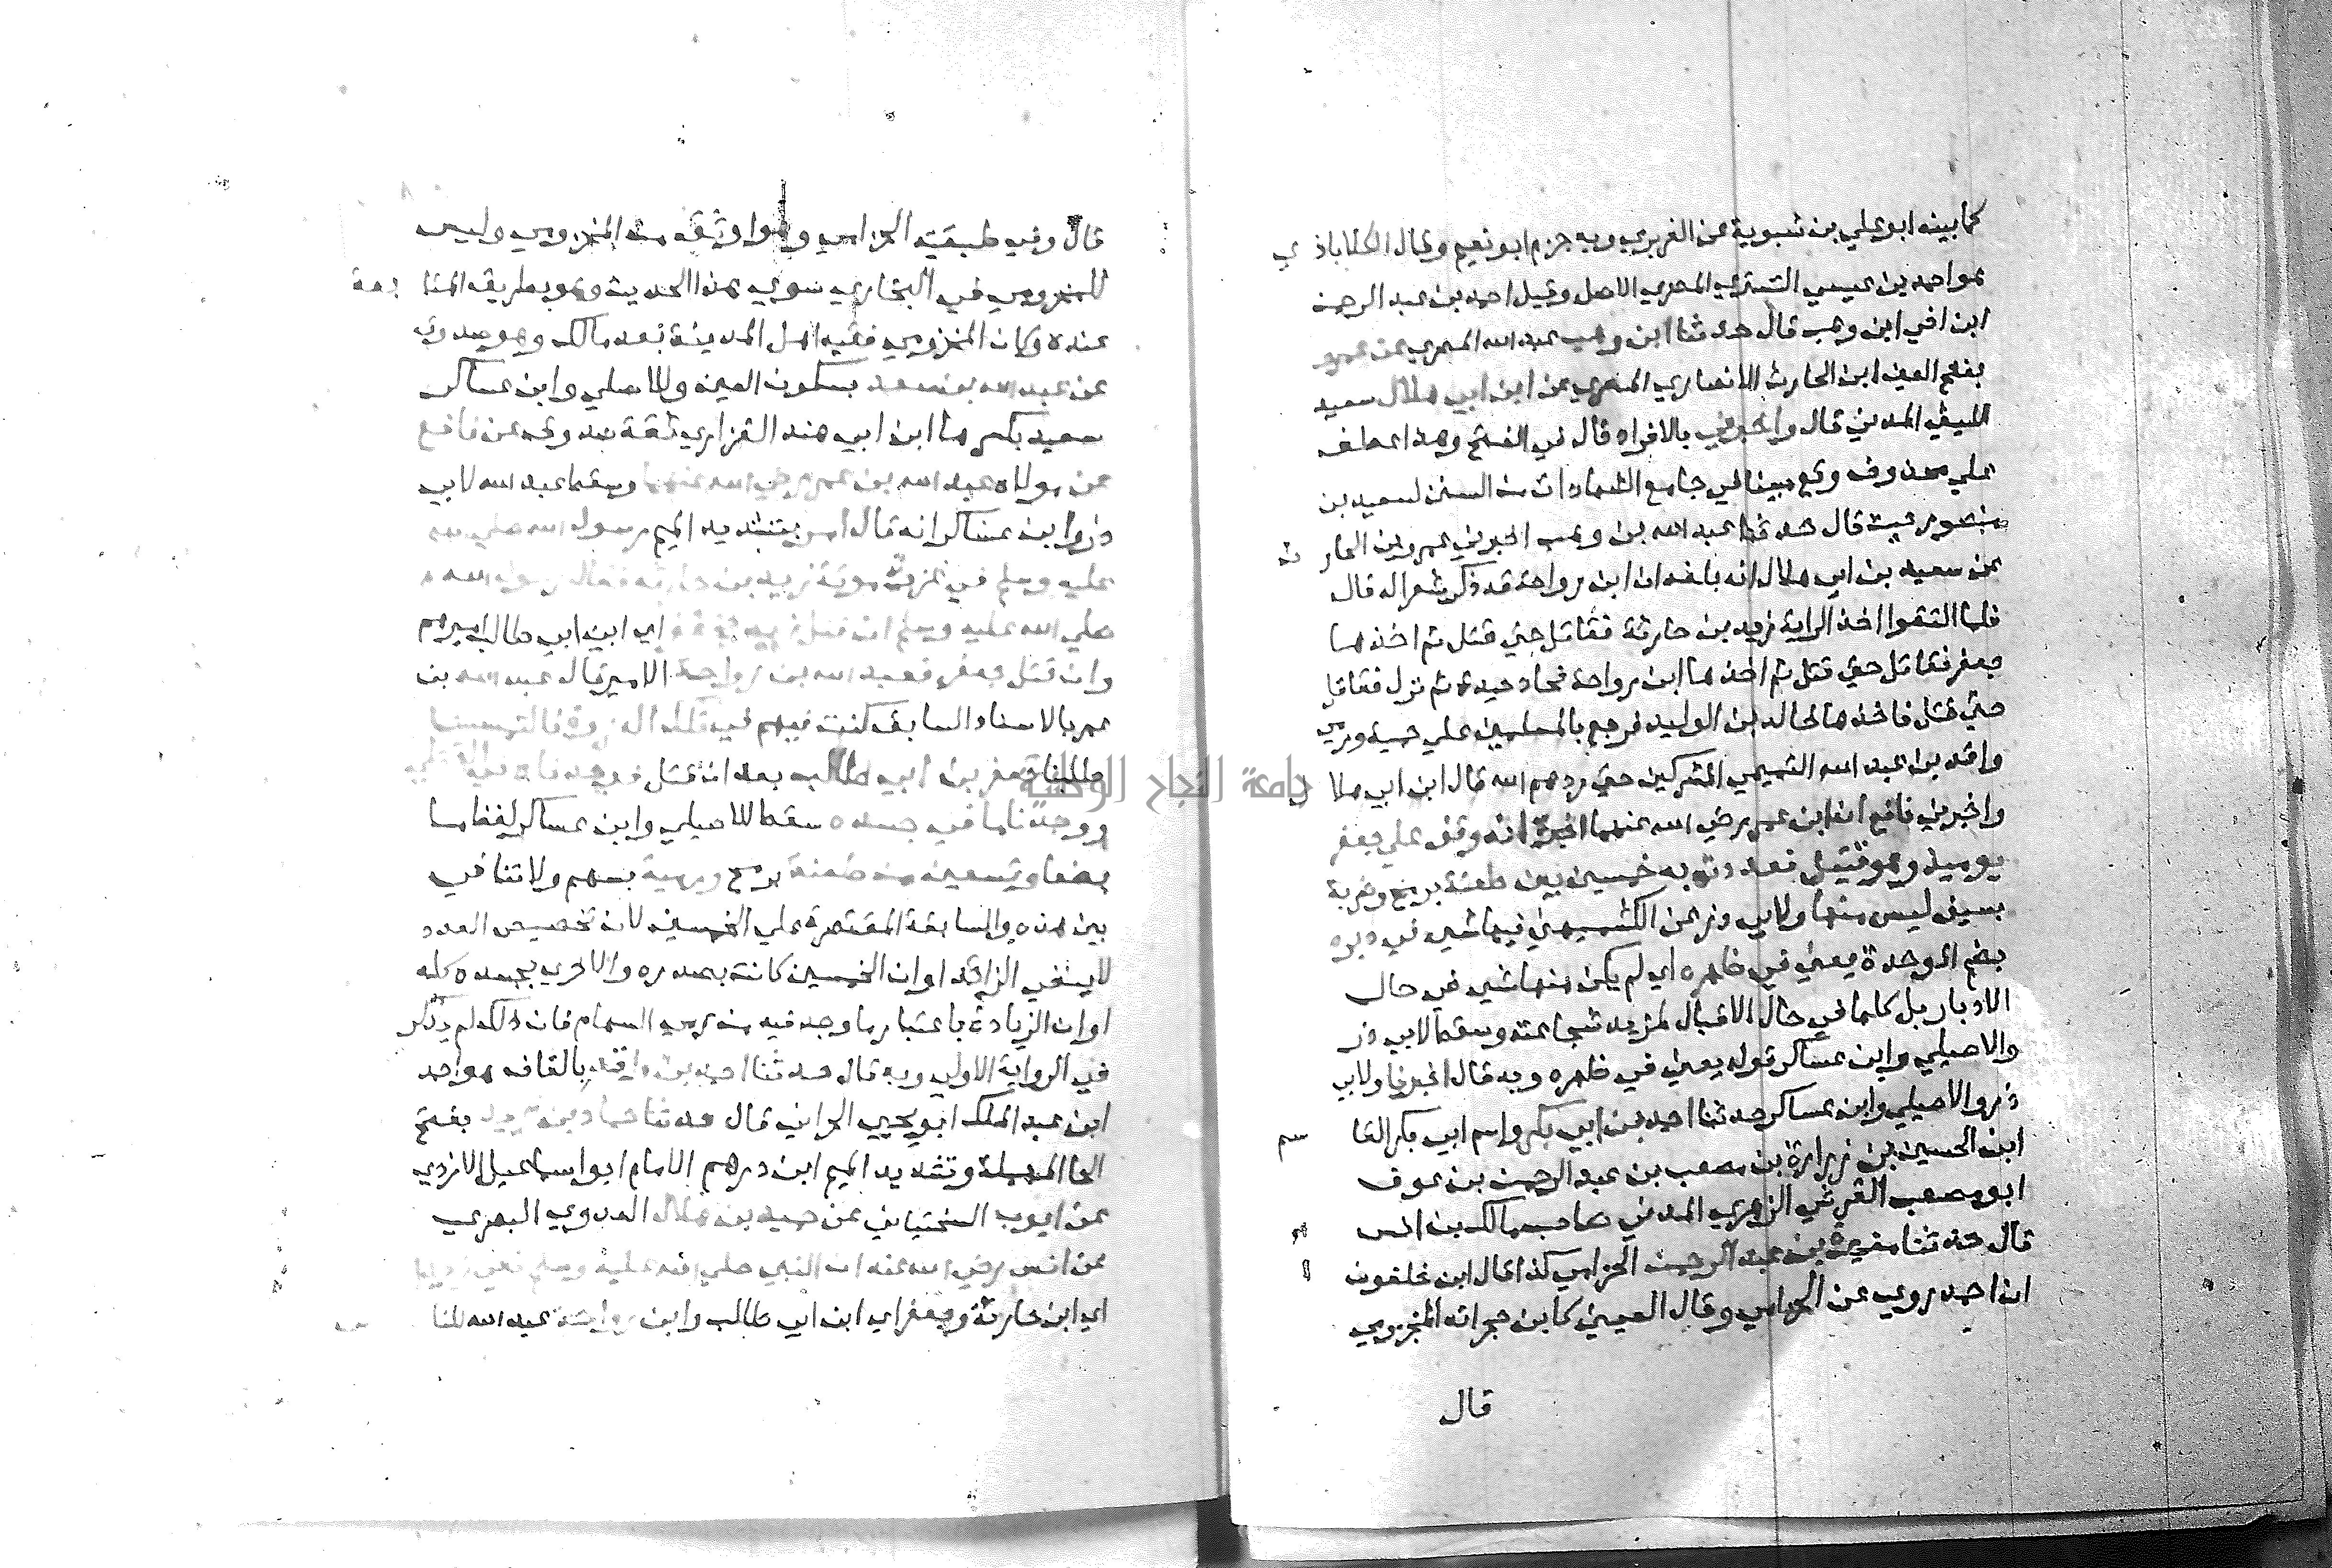 كما بينه ابو علي بن شبوية عن الفربري وبه جزم ابو نعيم وقال الكلاباذي
هو احمد بن عيسي التستري المصري الاصل وقيل احمد بن عبد الرحمن
ابن اخي ابن وهب قال حدثنا ابن وهب عبد الله المصري عن عمرو
بفتح العين ابن الحارث الانصاري المصري عن ابن ابي هلال سعيد
الليثي المدني قال واخبرني بالافراد قال في الفتح وهذا عطف
علي محذوف وقع مبينا في جامع الشهادات من السنن لسعيد بن
منصور حيث قال حدثنا عبد الله بن وهب اخبرني عمرو بن الحارث
عن سعيد بن ابي هلال انه بلغه ان ابن رواحة قد ذكر شعرا له قال
فلما التقوا اخذ الراية زيد بن حارثة فقاتل حتي قتل ثم اخذها
جعفر فقاتل حتي قتل ثم اخذها ابن رواحة فحاد حيدة ثم نزل فقاتل
حتي قتل فاخذها خالد بن الوليد فرجع بالمسلمين علي حمية ورمي
واقد بن عبد الله التميمي المشركين حتي ردهم الله قال ابن ابي هلال
واخبرني نافع ان ابن عمر رضي الله عنهما اخبره انه وقف علي جعفر
يوميذ وهو قتيل فعددت به خمسين بين طعنة برمح وضربة
بسيف ليس منها ولابي ذر عن الكشميهني فيها شي في دبره
بضم الموحدة يعني في ظهره اي لم يكن منها شي في حال
الادبار بل كلها في حال الاقبال لمزيد شجاعته وسقط لابي ذر
والاصيلي وابن عساكر قوله يعني في ظهره وبه قال اخبرنا ولابي
ذر والاصيلي وابن عساكر حدثنا احمد بن ابي بكر واسم ابي بكر القاسم
ابن الحسين بن زرارة بن مصعب بن عبد الرحمن بن عوف
ابو مصعب القرشي الزهري المدني صاحب مالك بن انس
قال حدثنا مغيرة بن عبد الرحمن الحزامي كذا قال ابن خلفون
ان احمد روي عن الحزامي وقال العيني كابن حجر انه المخزومي
قال
قال وفي طبقته الحزامي وهو اوثق من المخزومي وليس
للمخزومي في البخاري سوي هذا الحديث وهو بطريق المتابعة
عنده وكان المخزومي فقيه اهل المدينة بعد مالك وهو صدوق
عن عبد الله بن سعد بسكون العين وللاصيلي وابن عساكر
سعيد بكسرها ابن ابي هند الفزاري ثقة صدوق عن نافع
عن مولاه عبد الله بن عمر رضي الله عنهما وسقط عبد الله لابي
ذر وابن عساكر انه قال امر بتشديد الميم رسول الله صلي الله
عليه وسلم في غزوة موتة زيد بن حارثة فقال رسول الله
صلي الله عليه وسلم ان قتل زيد فجعفر اي ابن ابي طالب اميرهم
وان قتل جعفر فعبد الله بن رواحة الامير قال عبد الله بن
عمر بالاسناد السابق كنت فيهم في تلك الغزوة فالتمسنا
طلبنا جعفر بن ابي طالب بعد ان قتل فوجدناه في القتلي
ووجدنا ما في جسده سقط للاصيلي وابن عساكر لفظ ما
بضعا وتسعين من طعنة برمح ورمية بسهم ولا تنافي
بين هذه والسابقة المقتصرة علي الخمسين لان تخصيص العدد
لا ينفي الزائد او ان الخمسين كانت بصدره والاخري بجسده كله
او ان الزيادة باعتبار ما وجد فيه من رمي السهام فان ذلك لم يذكر
في الرواية الاولي وبه قال حدثنا احمد بن واقد بالقاف هو احمد
ابن عبد الملك ابو يحيي الحراني قال حدثنا حماد بن زيد بفتح
الحا المهملة وتشديد الميم ابن درهم الامام ابو اسماعيل الازدي
عن ايوب السختياني عن حميد بن هلال العدوي البصري
عن انس رضي الله عنه ان النبي صلي الله عليه وسلم نعي زيدا
اي ابن حارثة وجعفرا اي ابن ابي طالب وابن رواحة عبد الله للناس
جامعة النجاح الوطنية